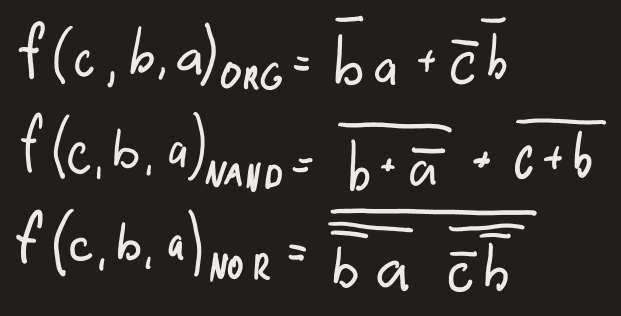 f(c, b, a)_{ORG} = \overline{b} a + \overline{c} \overline{b}
f(c, b, a)_{NAND} = \overline{b + \overline{a}} + \overline{c + b}
f(c, b, a)_{NOR} = \overline{\overline{\overline{b} a} \; \overline{\overline{c} \overline{b}}}